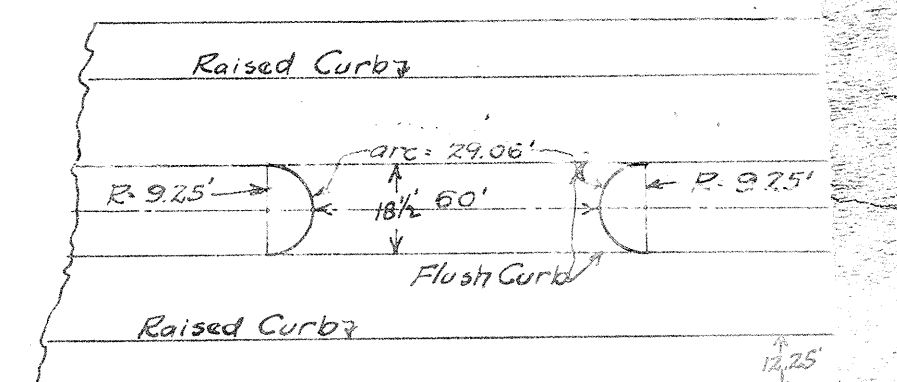 Raised Curb
arc = 29.06'
R= 9.25'
18½'
60'
R= 9.25'
Flush Curb
Raised Curb
12.25'